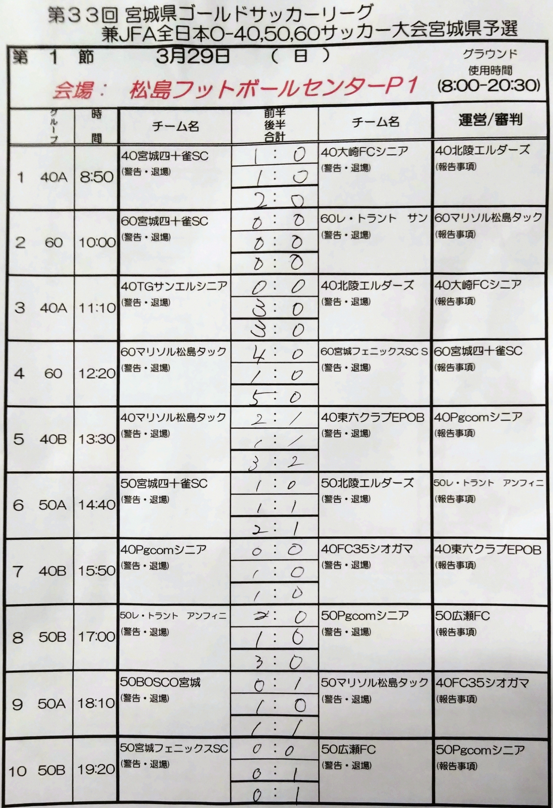 第33回 宮城県ゴールドサッカーリーグ
兼JFA全日本O-40,50,60サッカー大会宮城県予選
第 1 節 3月29日 ( 日 ) グラウンド
使用時間
会場: 松島フットボールセンターP1 (8:00-20:30)
グループ 時間 チーム名 前半 後半 合計 チーム名 運営/審判
1 40A 8:50 40宮城四十雀SC 1 : 0 40大崎FCシニア 40北陵エルダーズ
(警告・退場) 1 : 0 (警告・退場) (報告事項)
2 : 0
2 60 10:00 60宮城四十雀SC 0 : 0 60レ・トラント サン 60マリソル松島タック
(警告・退場) 0 : 0 (警告・退場) (報告事項)
0 : 0
3 40A 11:10 40TGサンエルシニア 0 : 0 40北陵エルダーズ 40大崎FCシニア
(警告・退場) 3 : 0 (警告・退場) (報告事項)
3 : 0
4 60 12:20 60マリソル松島タック 4 : 0 60宮城フェニックスSC S 60宮城四十雀SC
(警告・退場) 1 : 0 (警告・退場) (報告事項)
5 : 0
5 40B 13:30 40マリソル松島タック 2 : 1 40東六クラブEPOB 40Pgcomシニア
(警告・退場) 1 : 1 (警告・退場) (報告事項)
3 : 2
6 50A 14:40 50宮城四十雀SC 1 : 0 50北陵エルダーズ 50レ・トラント アンフィニ
(警告・退場) 1 : 1 (警告・退場) (報告事項)
2 : 1
7 40B 15:50 40Pgcomシニア 0 : 0 40FC35シオガマ 40東六クラブEPOB
(警告・退場) 1 : 0 (警告・退場) (報告事項)
1 : 0
8 50B 17:00 50レ・トラント アンフィニ 2 : 0 50Pgcomシニア 50広瀬FC
(警告・退場) 1 : 0 (警告・退場) (報告事項)
3 : 0
9 50A 18:10 50BOSCO宮城 0 : 1 50マリソル松島タック 40FC35シオガマ
(警告・退場) 1 : 0 (警告・退場) (報告事項)
1 : 1
10 50B 19:20 50宮城フェニックスSC 0 : 0 50広瀬FC 50Pgcomシニア
(警告・退場) 0 : 1 (警告・退場) (報告事項)
0 : 1